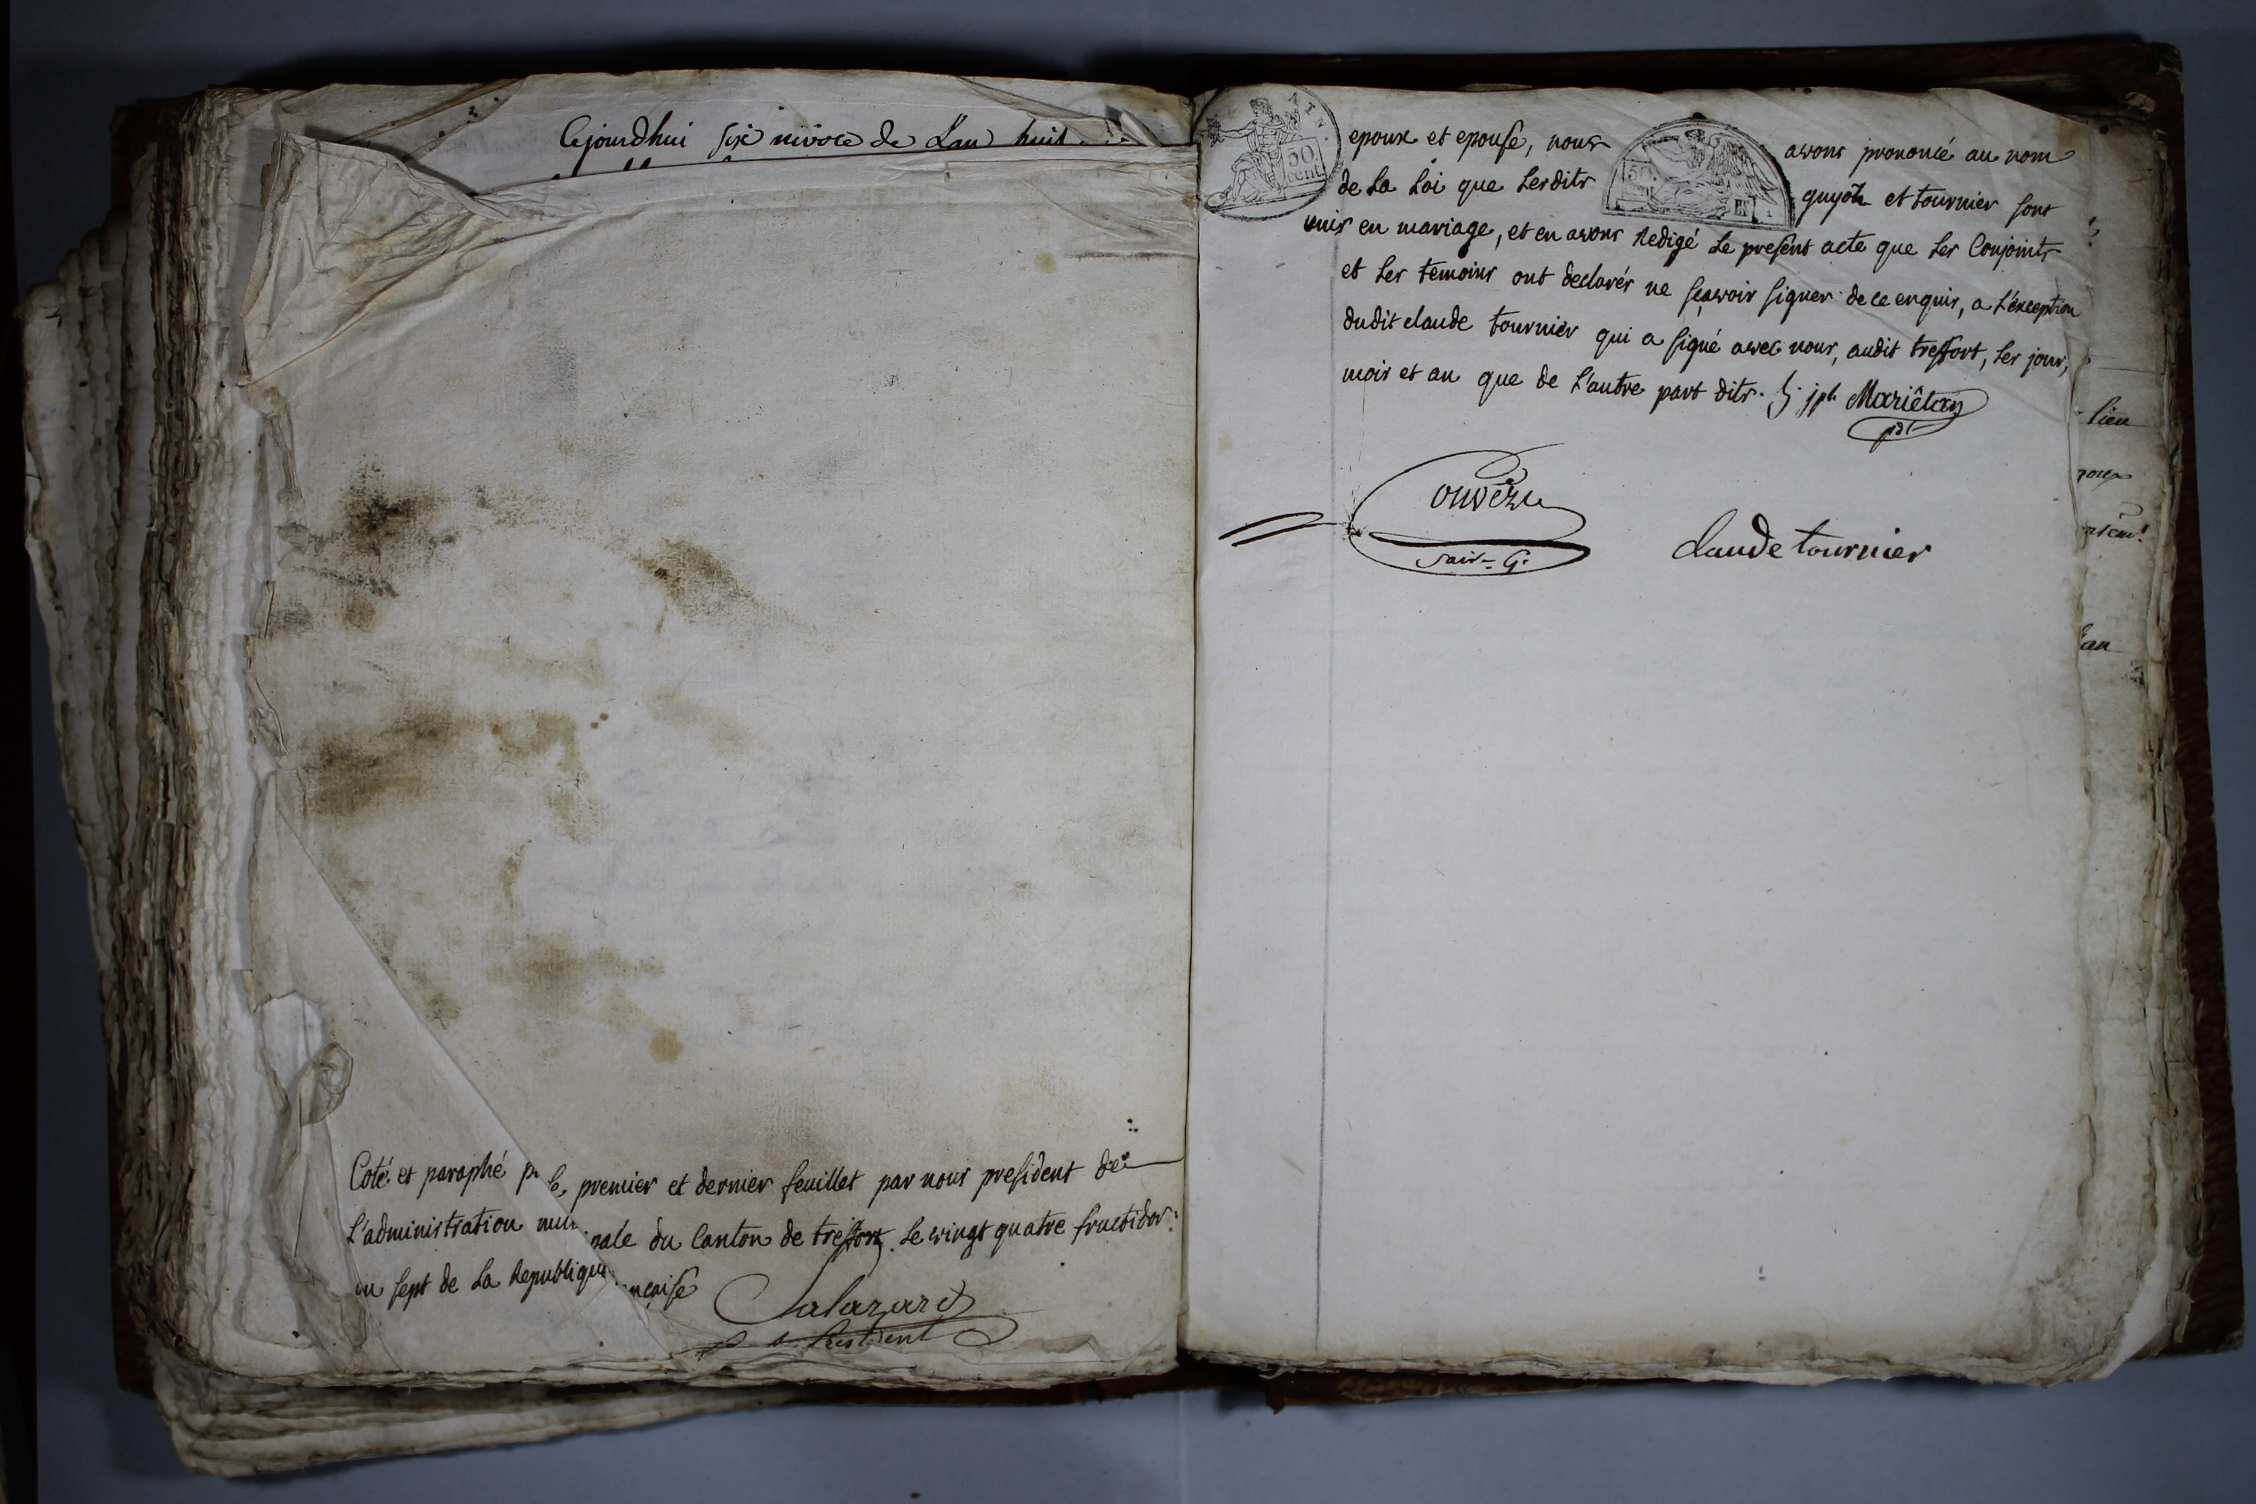 Cejourdhui six nivose de L'an huit
Coté et paraphé premier et dernier feuillet par nous president de
L'administration du Canton de treffort Le vingt quatre fructidor
sept de La Republique
Salazard
President
AIN
50 cent
epoux et epouse, nous avons prononcé au nom
de La Loi que Lesdits guyon et tournier sont
unis en mariage, et en avons Redigé Le present acte que Les Conjoints
et Les temoins ont declarés ne sçavoir signer de ce enquis, a L'exception
dudit claude tournier qui a signé avec nous, audit treffort, Les jour,
mois et an que de L'autre part dits. jph Mariêtan
pdt
Ouvêze
claude tournier
lieu